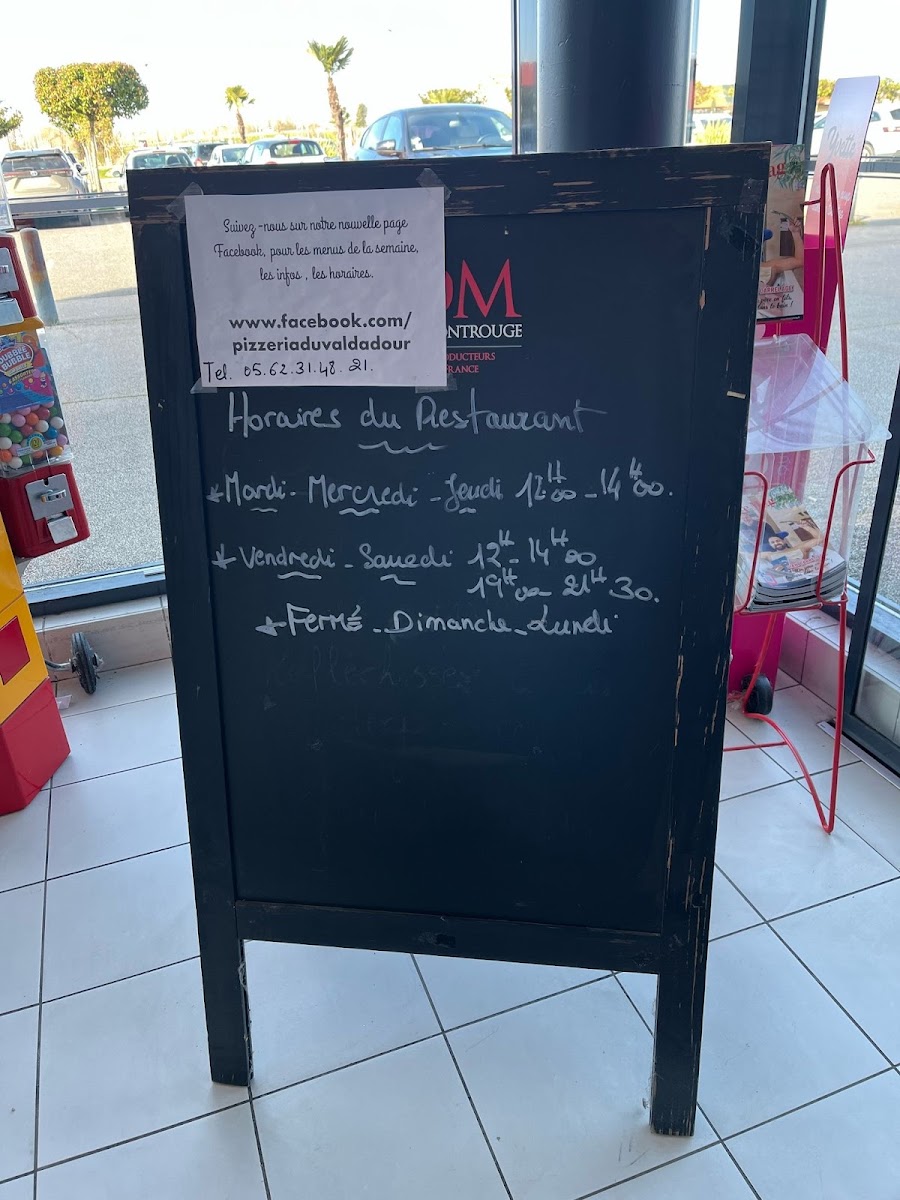 Suivez-nous sur notre nouvelle page
Facebook, pour les menus de la semaine,
les infos, les horaires.
www.facebook.com/
pizzeriaduvaldadour
Tel. 05.62.31.48.21.
OM
ONTROUGE
ODUCTEURS
FRANCE
Horaires du Restaurant
Mardi - Mercredi - Jeudi 12H00 - 14H00.
Vendredi - Samedi 12H - 14H00
19H00 - 21H30.
Fermé - Dimanche - Lundi
DUBBLE
BUBBLE